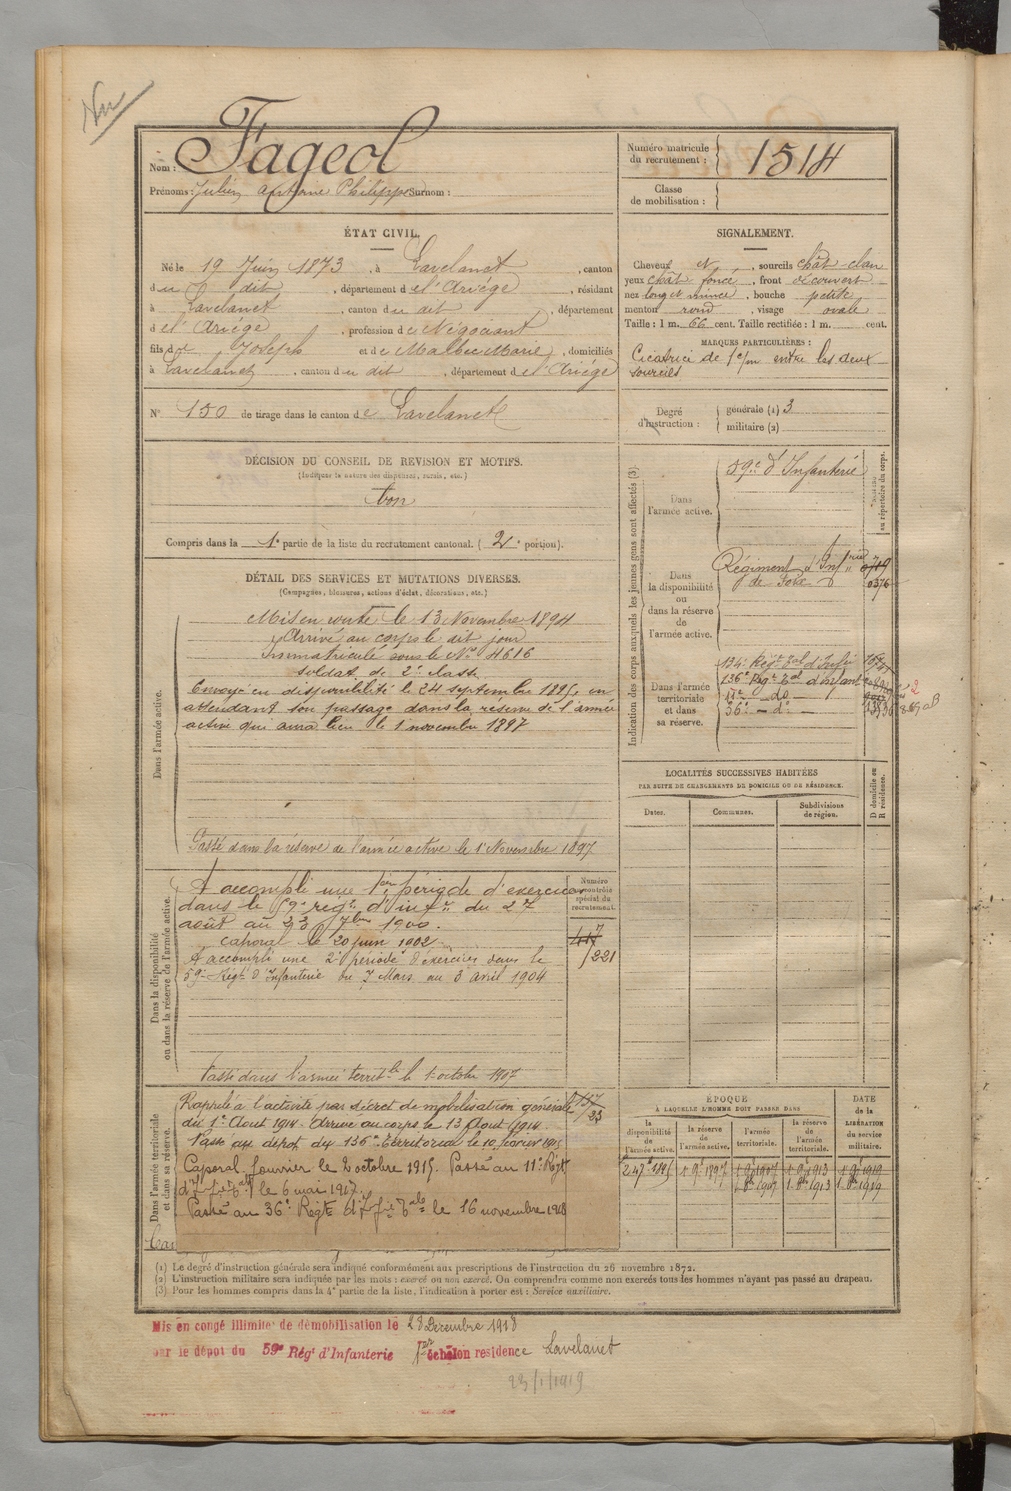 Nu
Nom : Fageol
Prénoms : Julien Antoine Philippe Surnom :
Numéro matricule du recrutement : 1514
Classe de mobilisation :
ÉTAT CIVIL.
Né le 19 Juin 1873, à Lavelanet, canton
du dit, département de l'Ariège, résidant
à Lavelanet, canton du dit, département
de l'Ariége, profession de Négociant
fils de Joseph et de Malbec Marie, domiciliés
à Lavelanet, canton du dit, département de l'Ariége
N° 150 de tirage dans le canton de Lavelanet
SIGNALEMENT.
Cheveux N, sourcils chât-clair
yeux chât foncé, front découvert
nez long et mince, bouche petite
menton rond, visage ovale
Taille : 1 m. 66 cent. Taille rectifiée : 1 m. cent.
MARQUES PARTICULIÈRES :
Cicatrice de 1 c/m entre les deux
sourcils
Degré d'instruction : générale (1) 3
militaire (2)
DÉCISION DU CONSEIL DE REVISION ET MOTIFS.
(Indiquer la nature des dispenses, sursis, etc.)
bon
Compris dans la 1e partie de la liste du recrutement cantonal. ( 2e portion).
DÉTAIL DES SERVICES ET MUTATIONS DIVERSES.
(Campagnes, blessures, actions d'éclat, décorations, etc.)
Dans l'armée active.
Mis en route le 13 Novembre 1894
Arrivé au corps le dit jour
Immatriculé sous le No 4616
soldat de 2e classe
Envoyé en disponibilité le 24 septembre 1895, en
attendant son passage dans la réserve de l'armée
active qui aura lieu le 1 novembre 1897
Passé dans la réserve de l'armée active le 1er Novembre 1897
Dans la disponibilité
ou dans la réserve de l'armée active.
A accompli une 1ère période d'exercices
dans le 59e rég. d'inf.ie du 27
août au 23 7bre 1900.
caporal le 20 juin 1902
A accompli une 2e période d'exercices dans le
59e Régt d'Infanterie du 7 Mars au 3 avril 1904
Passé dans l'armée territ.le le 1er octobre 1907
Numéro
au contrôle
spécial du
recrutement.
417
1221
Dans l'armée territoriale
et dans sa réserve.
Rappelé à l'activité par décret de mobilisation générale
du 1er Août 1914. Arrivé au corps le 13 Août 1914.
Passé au dépôt du 136e Territorial le 10 février 1915
Caporal fourrier le 2 octobre 1915. Passé au 11e Régt
d'Inf.ie T.ale le 6 mai 1917.
Passé au 36e Régt d'Inf.ie T.ale le 16 novembre 1918
Indication des corps auxquels les jeunes gens sont affectés (3).
Dans
l'armée active.
59e d'Infanterie
Numéro
au répertoire du corps.
Dans
la disponibilité
ou
dans la réserve
de
l'armée active.
Régiment d'Inf.rie
de Foix
0719
0376
Dans l'armée
territoriale
et dans
sa réserve.
134e Régt T.al d'Infie
136e Régt T.al d'Infant
11e — do —
36e — do —
LOCALITÉS SUCCESSIVES HABITÉES
PAR SUITE DE CHANGEMENTS DE DOMICILE OU DE RÉSIDENCE.
Dates.
Communes.
Subdivisions
de région.
D domicile ou
R résidence.
ÉPOQUE
À LAQUELLE L'HOMME DOIT PASSER DANS
DATE
de la
LIBÉRATION
du service
militaire.
la
disponibilité
de
l'armée active.
la réserve
de
l'armée active.
l'armée
territoriale.
la réserve
de l'armée
territoriale.
24 7e 1895
1 9e 1897
1 9e 1907
1 9e 1913
1 9e 1919
1 8bre 1907
1 8bre 1913
1 8bre 1919
(1) Le degré d'instruction générale sera indiqué conformément aux prescriptions de l'instruction du 26 novembre 1872.
(2) L'instruction militaire sera indiquée par les mots : exercé ou non exercé. On comprendra comme non exercés tous les hommes n'ayant pas passé au drapeau.
(3) Pour les hommes compris dans la 4e partie de la liste, l'indication à porter est : Service auxiliaire.
Mis en congé illimité de démobilisation le 28 Décembre 1918
par le dépôt du 59e Régt d'Infanterie 1er échelon résidence Lavelanet
23/1/1919